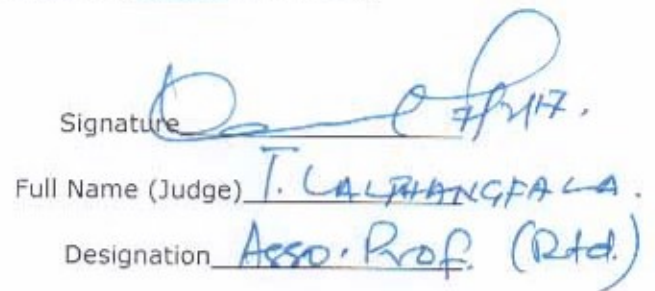 Signature 7/2/17.
Full Name (Judge) T. LALPHANGFALA.
Designation Asso. Prof. (Rtd.)